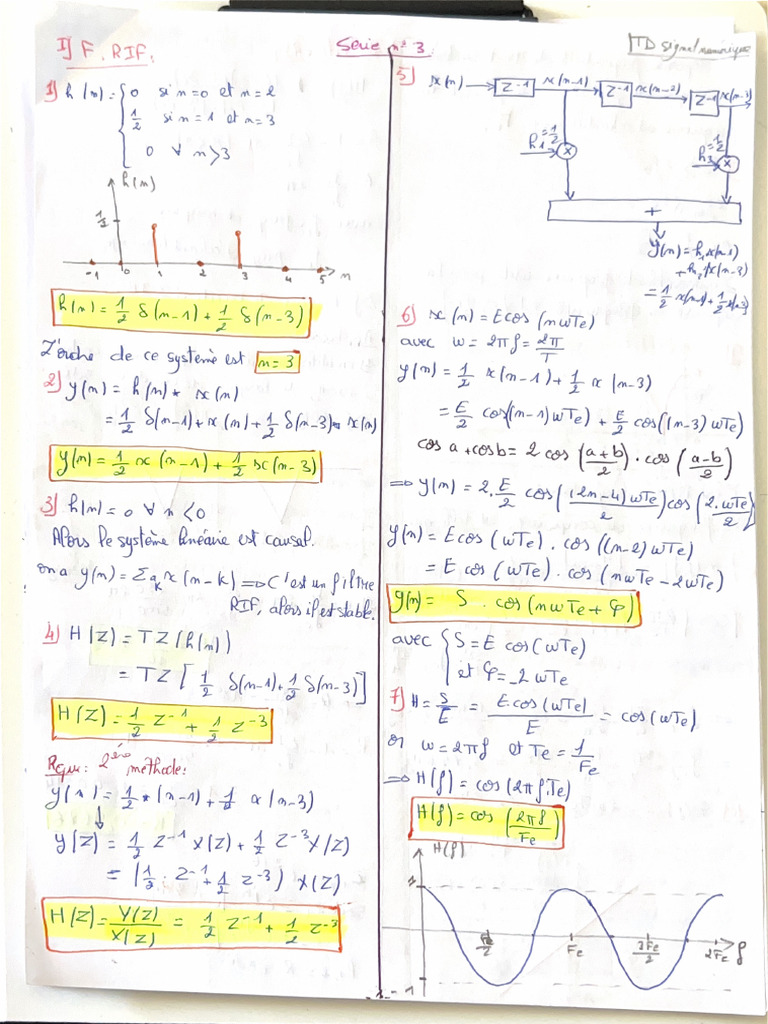 Série n° 3.
TD signal numérique
I] F. RIF.
1] h(n) = { 0 si n=0 et n=2
1/2 si n=1 et n=3
0 ∀ n>3
h(n)
1/2
-1 0 1 2 3 4 5 n
h(n) = 1/2 δ(n-1) + 1/2 δ(n-3)
L'ordre de ce système est n=3
2] y(n) = h(n) * x(n)
= 1/2 δ(n-1) * x(n) + 1/2 δ(n-3) * x(n)
y(n) = 1/2 x(n-1) + 1/2 x(n-3)
3] h(n) = 0 ∀ n < 0
Alors le système linéaire est causal.
on a y(n) = Σ a_k x(n-k) => C'est un filtre
RIF, alors il est stable.
4] H(Z) = TZ(h(n))
= TZ[1/2 δ(n-1) + 1/2 δ(n-3)]
H(Z) = 1/2 Z^-1 + 1/2 Z^-3
Rque: 2ème méthode:
y(n) = 1/2 x(n-1) + 1/2 x(n-3)
↓
y(Z) = 1/2 Z^-1 X(Z) + 1/2 Z^-3 X(Z)
= (1/2 Z^-1 + 1/2 Z^-3) X(Z)
H(Z) = Y(Z)/X(Z) = 1/2 Z^-1 + 1/2 Z^-3
5] x(n) → Z^-1 x(n-1) Z^-1 x(n-2) Z^-1 x(n-3)
h1 = 1/2 × h3 = 1/2 ×
+
y(n) = h1 x(n-1)
+ h3 x(n-3)
= 1/2 x(n-1) + 1/2 x(n-3)
6] x(n) = E cos(nωTe)
avec ω = 2πf = 2π/T
y(n) = 1/2 x(n-1) + 1/2 x(n-3)
= E/2 cos((n-1)ωTe) + E/2 cos((n-3)ωTe)
cos a + cos b = 2 cos((a+b)/2) . cos((a-b)/2)
=> y(n) = 2. E/2 cos((2n-4)ωTe/2) cos(2.ωTe/2)
y(n) = E cos(ωTe) . cos((n-2)ωTe)
= E cos(ωTe) . cos(nωTe - 2ωTe)
y(n) = S . cos(nωTe + φ)
avec { S = E cos(ωTe)
et φ = -2ωTe
7] H = S/E = E cos(ωTe)/E = cos(ωTe)
or ω = 2πf et Te = 1/Fe
=> H(f) = cos(2πf.Te)
H(f) = cos(2πf/Fe)
H(f)
1
Fe/2 Fe 3Fe/2 2Fe f
-1